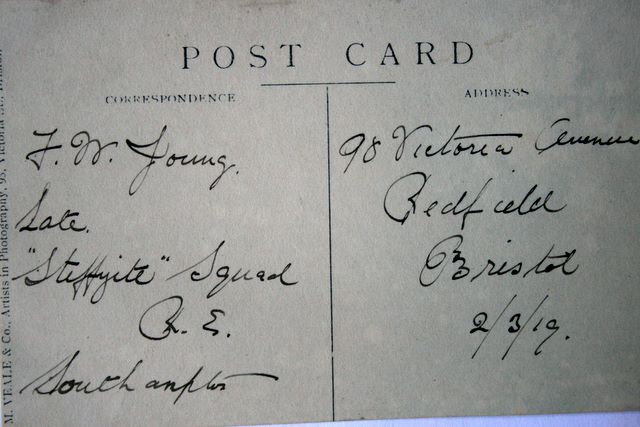 POST CARD
CORRESPONDENCE
F. W. Young.
Late.
"Steffyite" Squad
R. E.
Southampton
ADDRESS
98 Victoria Avenue
Redfield
Bristol
2/3/19.
M. VEALE & Co., Artists in Photography, 93, Victoria St., Bristol